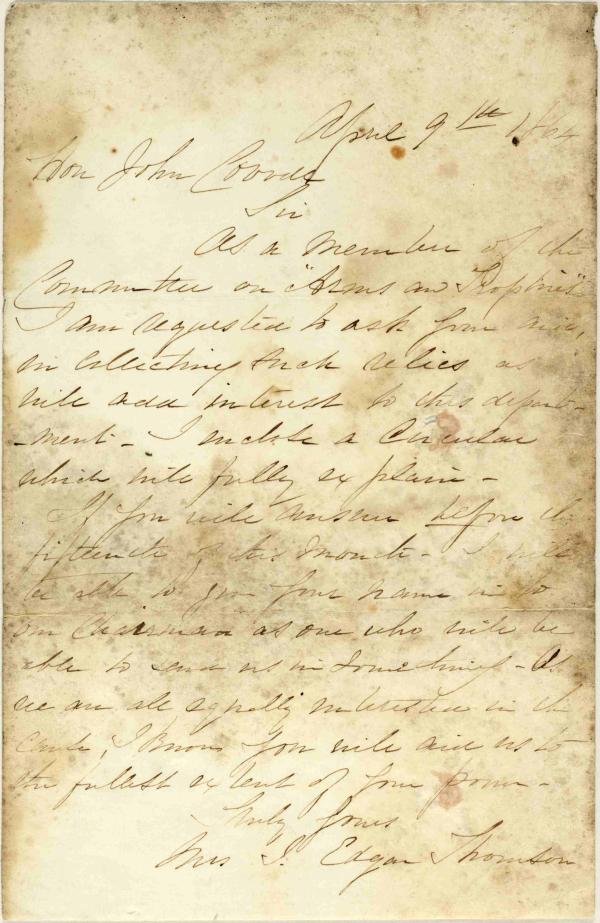 April 9th 1864
Hon John Covode
Sir
As a member of the
Committee on "Arms and Trophies"
I am requested to ask your aid,
in collecting such relics as
will add interest to this depart-
-ment - I enclose a Circular
which will fully explain -
If you will answer before the
fifteenth of this month - I will
be able to give your name in to
our Chairman as one who will be
able to send us in some things - As
we are all equally interested in the
cause, I know you will aid us to
the fullest extent of your power -
Truly yours
Mrs J. Edgar Thomson